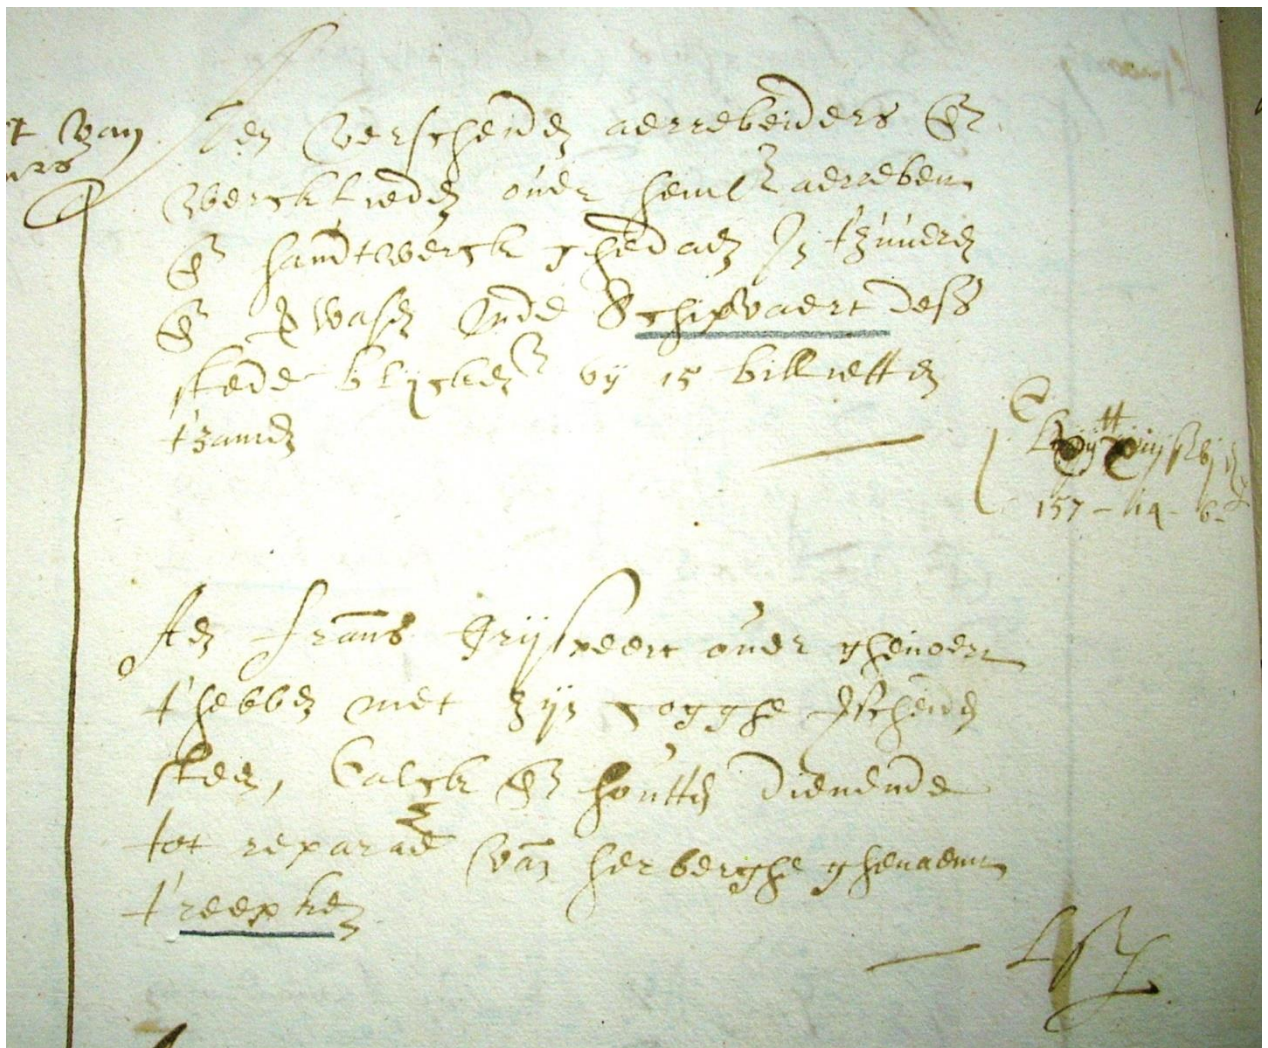 t van
Aen verscheiden aerrebeiders en
wercklieden over heml aerrebeit
en handtwerck ghedaen In t'zuveren
en wassen Inde Schipvaert deser
stede blijcken by 15 billietten
t'zamen
157 - 14 - 6
Aen frans over ghevoert
t'hebben met zijn verscheiden
steen, Calck en houtte dienende
tot reparatie van herberghe ghenaemt
t'reepken